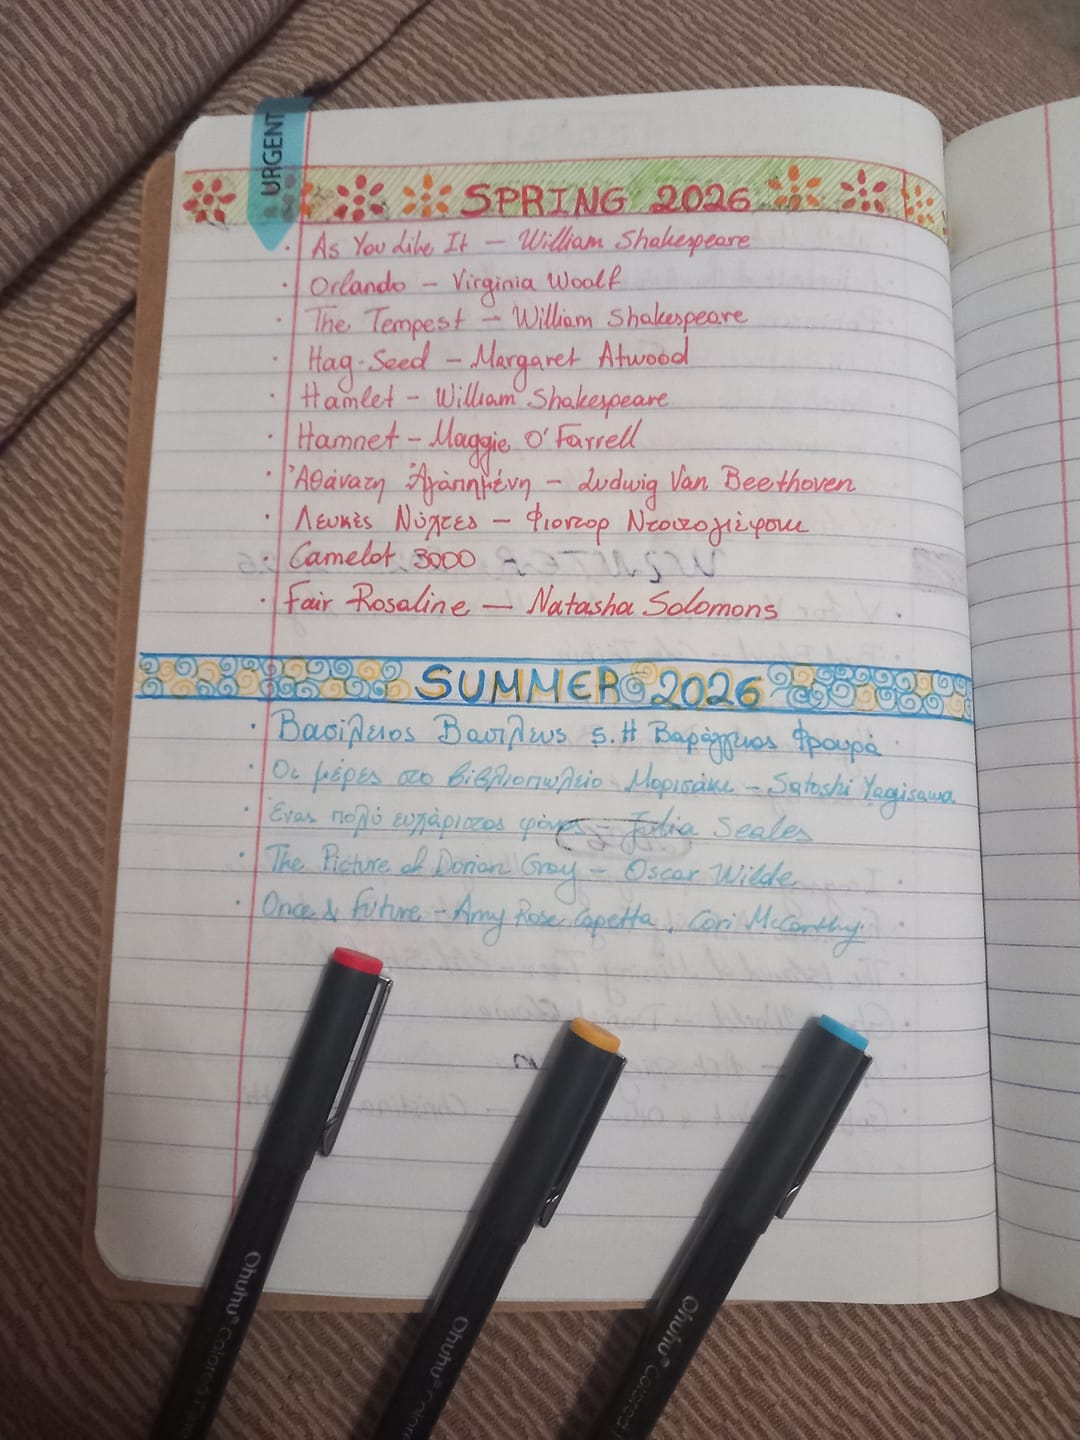 URGENT
SPRING 2026
· As You Like It – William Shakespeare
· Orlando – Virginia Woolf
· The Tempest – William Shakespeare
· Hag-Seed – Margaret Atwood
· Hamlet – William Shakespeare
· Hamnet – Maggie O'Farrell
· Ἀθάνατη Ἀγαπημένη – Ludwig Van Beethoven
· Λευκές Νύχτες – Φιοντορ Ντοστογιέφσκι
· Camelot 3000
· Fair Rosaline – Natasha Solomons
SUMMER 2026
· Βασίλειος Βασιλεως 5. Η Βαράγγειος Φρουρά
· Οι μέρες στο βιβλιοπωλείο Μορισάκι – Satoshi Yagisawa
· Ένας πολύ ευχάριστος φόνος – Julia Seales
· The Picture of Dorian Gray – Oscar Wilde
· Once & Future – Amy Rose Capetta, Cori McCarthy
Ohuhu® Colored
Ohuhu® Colore
Ohuhu® Colored